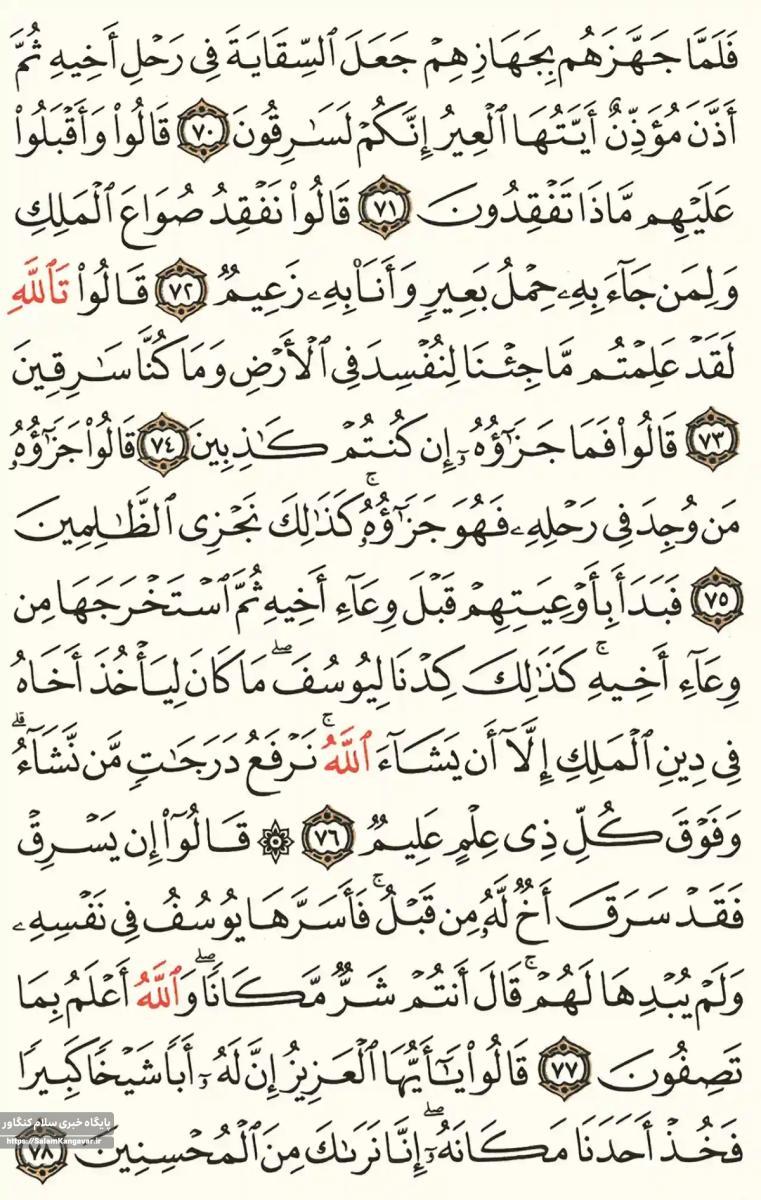 فَلَمَّا جَهَّزَهُم بِجَهَازِهِمْ جَعَلَ ٱلسِّقَايَةَ فِى رَحْلِ أَخِيهِ ثُمَّ
أَذَّنَ مُؤَذِّنٌ أَيَّتُهَا ٱلْعِيرُ إِنَّكُمْ لَسَـٰرِقُونَ ٧٠ قَالُوا۟ وَأَقْبَلُوا۟
عَلَيْهِم مَّاذَا تَفْقِدُونَ ٧١ قَالُوا۟ نَفْقِدُ صُوَاعَ ٱلْمَلِكِ
وَلِمَن جَآءَ بِهِۦ حِمْلُ بَعِيرٍ وَأَنَا۠ بِهِۦ زَعِيمٌ ٧٢ قَالُوا۟ تَٱللَّهِ
لَقَدْ عَلِمْتُم مَّا جِئْنَا لِنُفْسِدَ فِى ٱلْأَرْضِ وَمَا كُنَّا سَـٰرِقِينَ
٧٣ قَالُوا۟ فَمَا جَزَٰٓؤُهُۥٓ إِن كُنتُمْ كَـٰذِبِينَ ٧٤ قَالُوا۟ جَزَٰٓؤُهُۥ
مَن وُجِدَ فِى رَحْلِهِۦ فَهُوَ جَزَٰٓؤُهُۥ ۚ كَذَٰلِكَ نَجْزِى ٱلظَّـٰلِمِينَ
٧٥ فَبَدَأَ بِأَوْعِيَتِهِمْ قَبْلَ وِعَآءِ أَخِيهِ ثُمَّ ٱسْتَخْرَجَهَا مِن
وِعَآءِ أَخِيهِ ۚ كَذَٰلِكَ كِدْنَا لِيُوسُفَ ۖ مَا كَانَ لِيَأْخُذَ أَخَاهُ
فِى دِينِ ٱلْمَلِكِ إِلَّآ أَن يَشَآءَ ٱللَّهُ ۚ نَرْفَعُ دَرَجَـٰتٍ مَّن نَّشَآءُ ۗ
وَفَوْقَ كُلِّ ذِى عِلْمٍ عَلِيمٌ ٧٦ ۞ قَالُوٓا۟ إِن يَسْرِقْ
فَقَدْ سَرَقَ أَخٌ لَّهُۥ مِن قَبْلُ ۚ فَأَسَرَّهَا يُوسُفُ فِى نَفْسِهِۦ
وَلَمْ يُبْدِهَا لَهُمْ ۚ قَالَ أَنتُمْ شَرٌّ مَّكَانًا ۖ وَٱللَّهُ أَعْلَمُ بِمَا
تَصِفُونَ ٧٧ قَالُوا۟ يَـٰٓأَيُّهَا ٱلْعَزِيزُ إِنَّ لَهُۥٓ أَبًا شَيْخًا كَبِيرًا
فَخُذْ أَحَدَنَا مَكَانَهُۥٓ ۖ إِنَّا نَرَىٰكَ مِنَ ٱلْمُحْسِنِينَ ٧٨
پایگاه خبری سلام کنگاور
https://SalamKangavar.ir